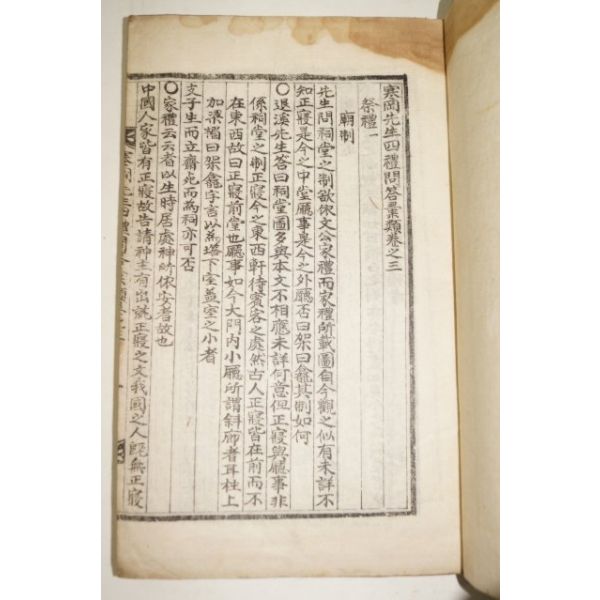 寒岡先生四禮問答彙類卷之三
祭禮一
廟制
先生問祠堂之制欲依文公家禮而家禮所載圖自今觀之似有未詳不
知正寢是今之中堂廳事是今之外廳否曰架曰龕其制如何
○退溪先生答曰祠堂圖多與本文不相應未詳何意但正寢與廳事非
係祠堂之制正寢今之東西軒待賓客之處然古人正寢皆在前而不
在東西故曰正寢前堂也廳事如今大門內小廳所謂斜廊者耳柱上
加梁楣曰架龕字言以爲塔下室盖室之小者
支子生而立齋死而爲祠亦可否
○家禮云云者以生時居處神所依安者故也
中國人家皆有正寢故告請神主有出就正寢之文我國之人旣無正寢